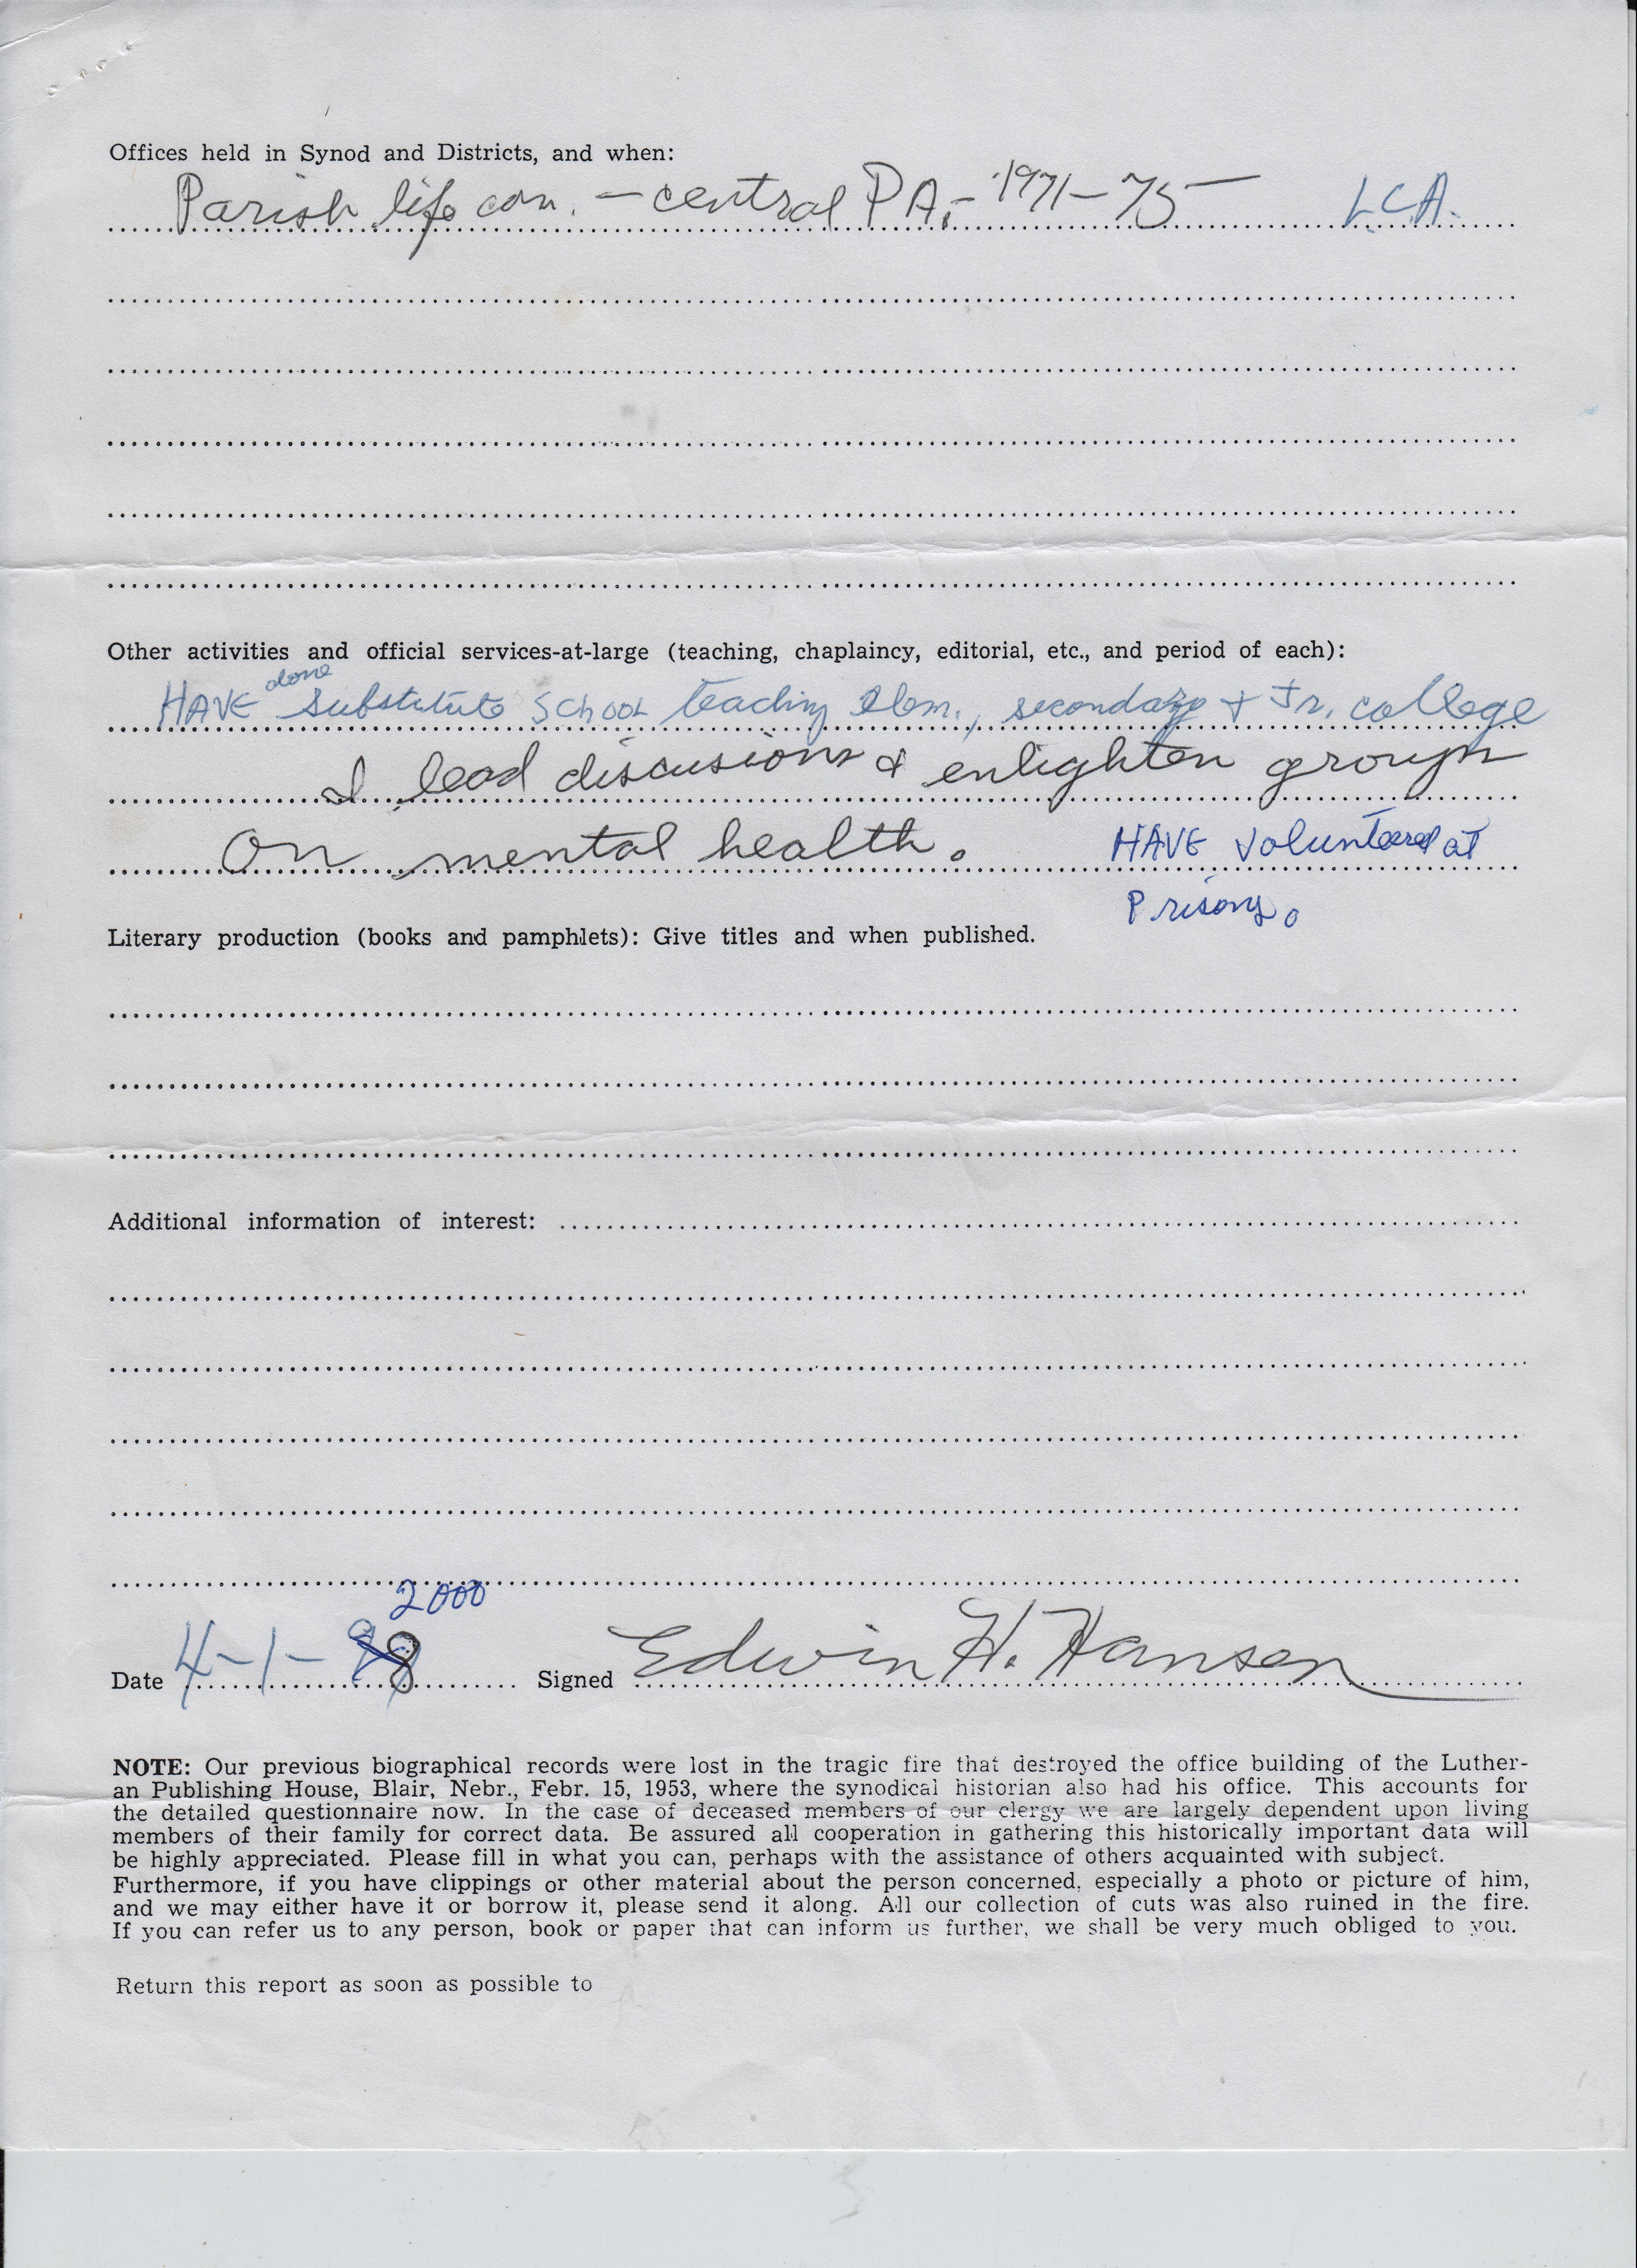 Offices held in Synod and Districts, and when:
Parish life com. - central PA. - 1971-75 - LCA.
Other activities and official services-at-large (teaching, chaplaincy, editorial, etc., and period of each):
HAVE done substitute SCHOOL teaching Elem., secondary + Jr. college
I lead discusions & enlighten groups
on mental health. HAVE volunteered at
Prisons.
Literary production (books and pamphlets): Give titles and when published.
Additional information of interest:
2000
Date 4-1- Signed Edwin H. Hansen
NOTE: Our previous biographical records were lost in the tragic fire that destroyed the office building of the Luther-
an Publishing House, Blair, Nebr., Febr. 15, 1953, where the synodical historian also had his office. This accounts for
the detailed questionnaire now. In the case of deceased members of our clergy we are largely dependent upon living
members of their family for correct data. Be assured all cooperation in gathering this historically important data will
be highly appreciated. Please fill in what you can, perhaps with the assistance of others acquainted with subject.
Furthermore, if you have clippings or other material about the person concerned, especially a photo or picture of him,
and we may either have it or borrow it, please send it along. All our collection of cuts was also ruined in the fire.
If you can refer us to any person, book or paper that can inform us further, we shall be very much obliged to you.
Return this report as soon as possible to